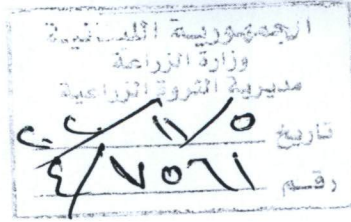 الجمهورية اللبنانية
وزارة الزراعة
مديرية الثروة الزراعية
تاريخ ٥/١١/٢٠٢٠
رقم ٧٥٦١/٤